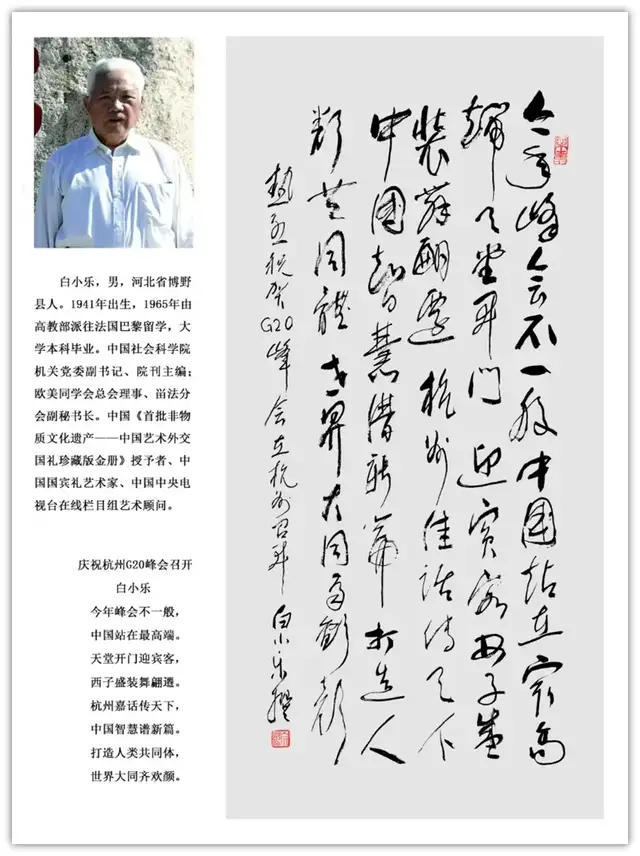 白小乐，男，河北省博野
县人。1941年出生，1965年由
高教部派往法国巴黎留学，大
学本科毕业。中国社会科学院
机关党委副书记、院刊主编；
欧美同学会总会理事、畄法分
会副秘书长。中国《首批非物
质文化遗产——中国艺术外交
国礼珍藏版金册》授予者、中
国国宾礼艺术家、中国中央电
视台在线栏目组艺术顾问。
庆祝杭州G20峰会召开
白小乐
今年峰会不一般，
中国站在最高端。
天堂开门迎宾客，
西子盛装舞翩迁。
杭州嘉话传天下，
中国智慧谱新篇。
打造人类共同体，
世界大同齐欢颜。
今年峰会不一般中国站在最高
端天堂开门迎宾客西子盛
装舞翩迁杭州佳话传天下
中国智慧谱新篇打造人
类共同體世界大同齐欢颜
热烈祝贺G20峰会在杭州召开白小乐撰